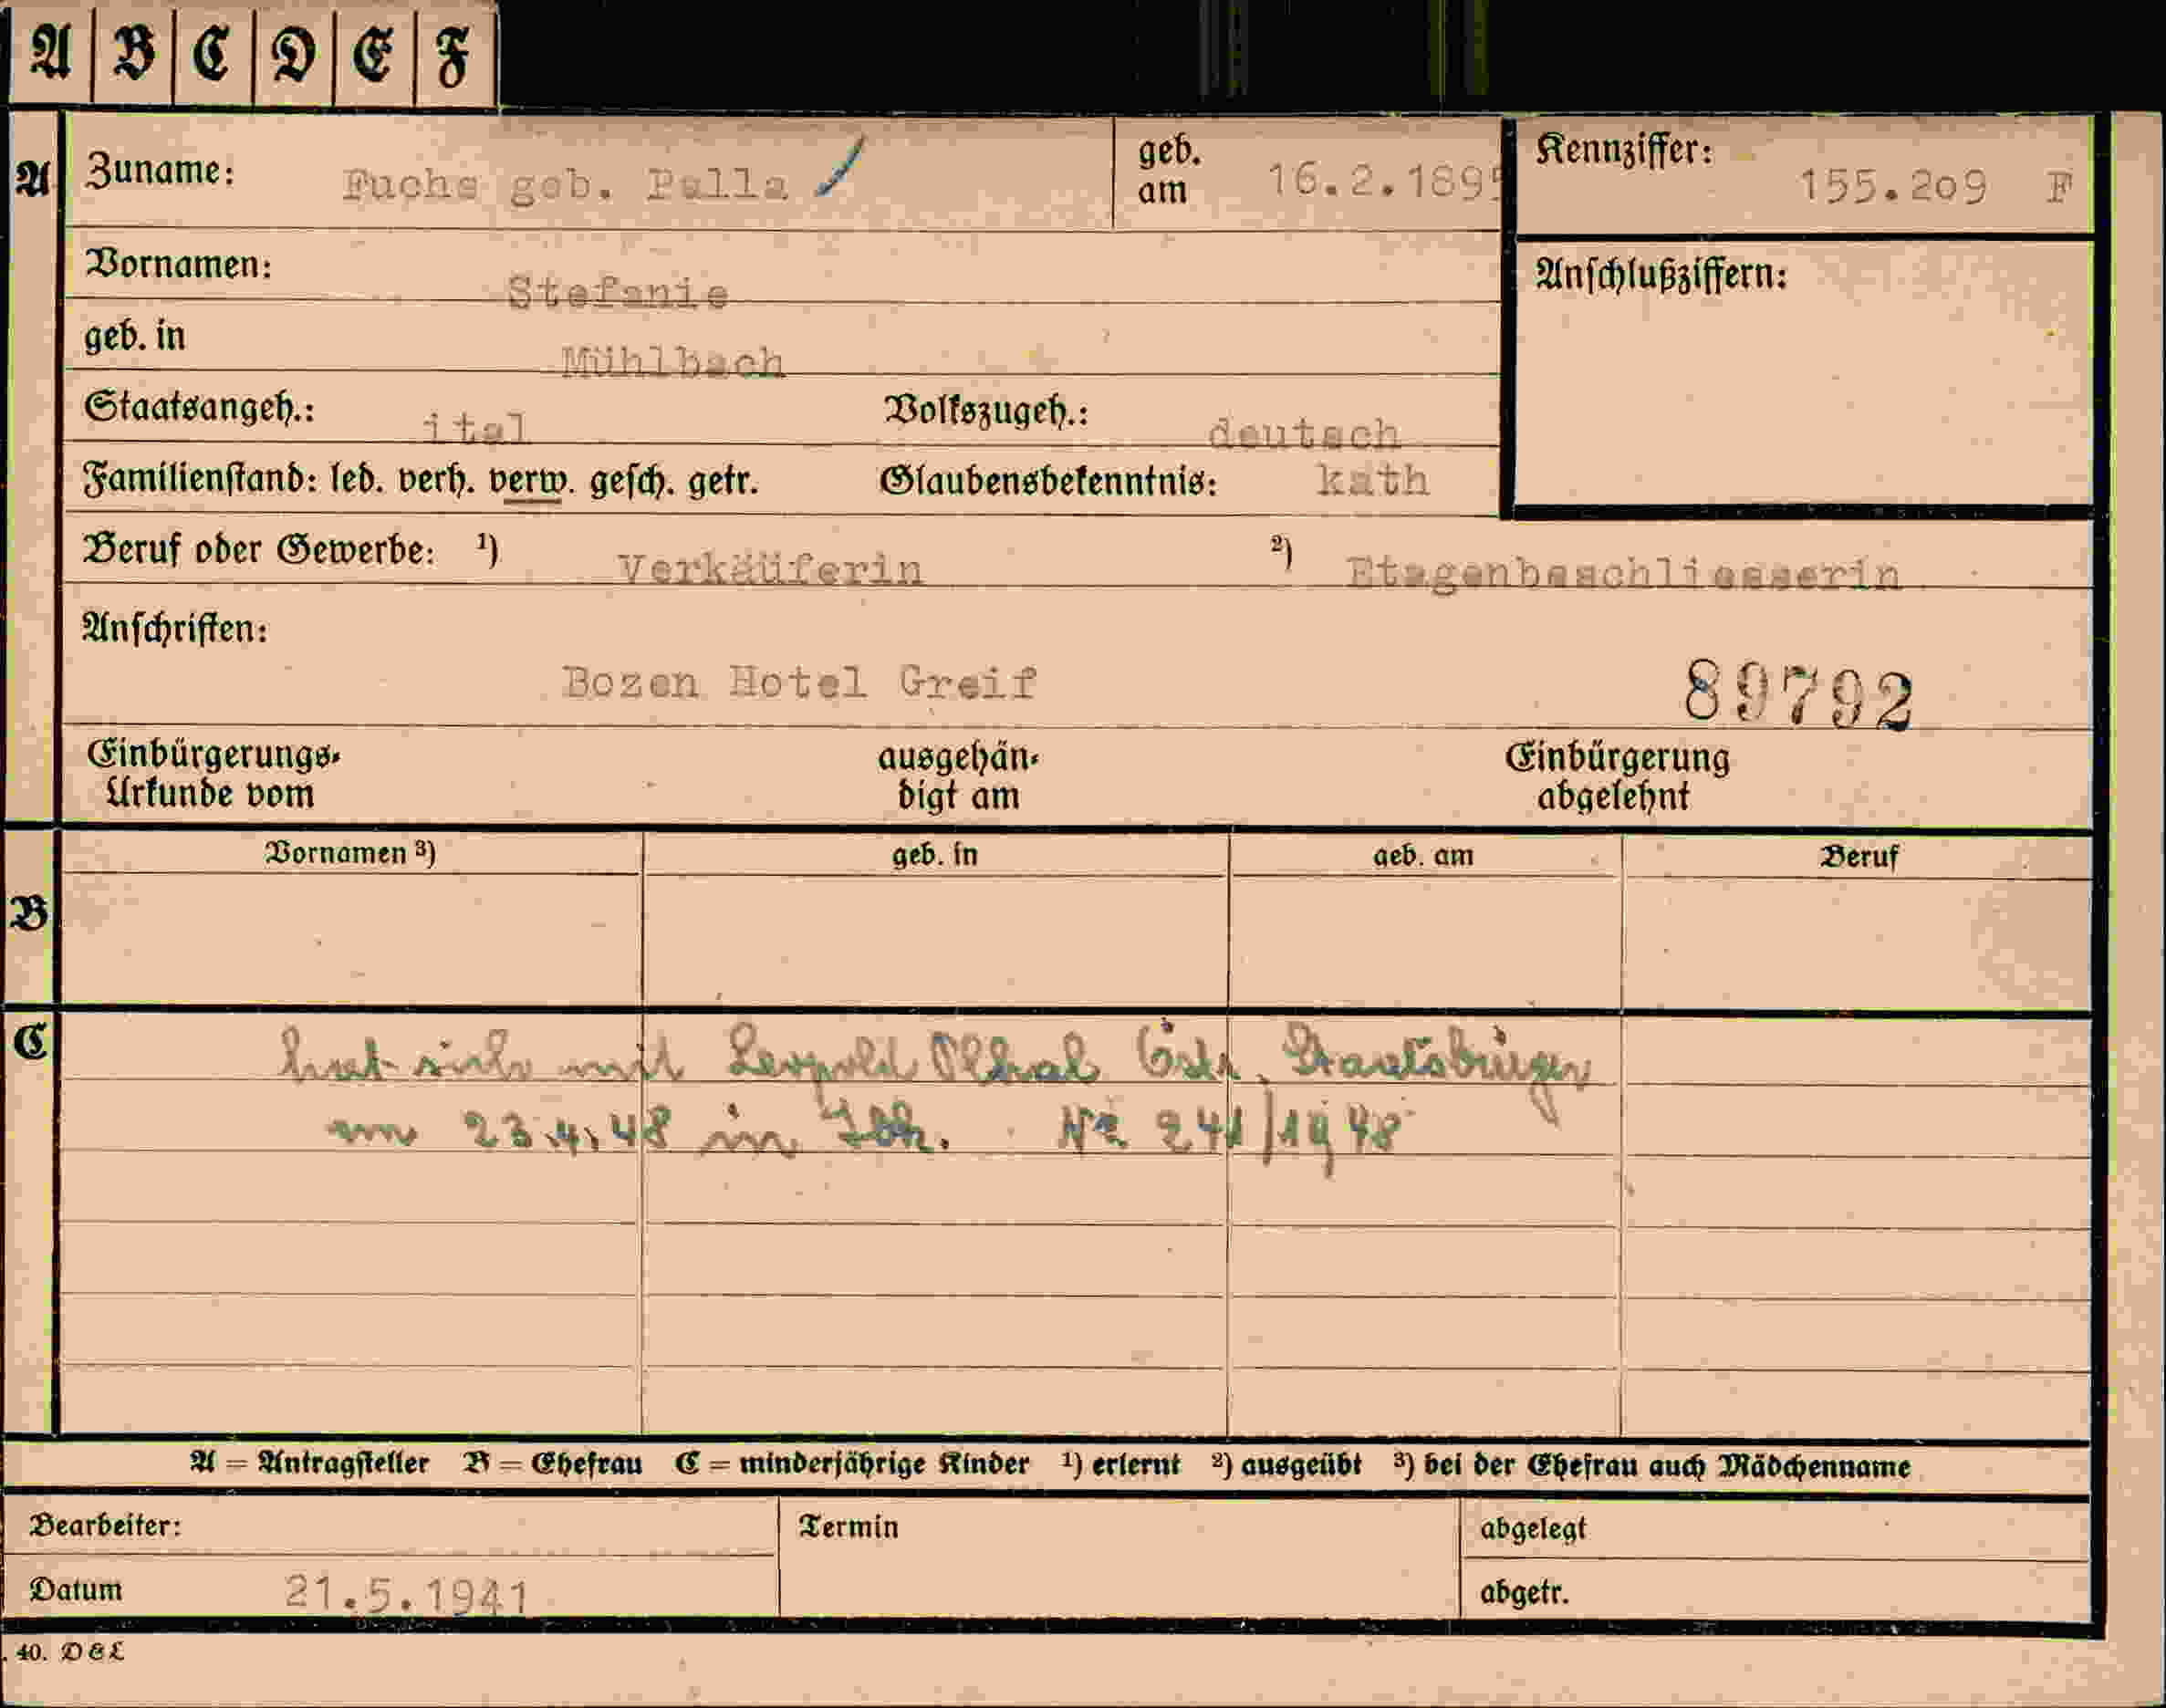 A B C D E F
A Zuname: Fuchs geb. Palla geb. am 16.2.1895 Kennziffer: 155.209 F
Vornamen: Stefanie Anschlußziffern:
geb. in Mühlbach
Staatsangeh.: ital Volkszugeh.: deutsch
Familienstand: led. verh. verw. gesch. getr. Glaubensbekenntnis: kath
Beruf oder Gewerbe: 1) Verkäuferin 2) Etagenbeschliesserin
Anschriften:
Bozen Hotel Greif 89792
Einbürgerungs- ausgehän- Einbürgerung
Urkunde vom digt am abgelehnt
Vornamen 3) geb. in geb. am Beruf
B
C hat sich mit Leopold Östr. Staatsbürger
am 23.4.48 in Ibk. No 241/1948
A = Antragsteller B = Ehefrau C = minderjährige Kinder 1) erlernt 2) ausgeübt 3) bei der Ehefrau auch Mädchenname
Bearbeiter: Termin abgelegt
Datum 21.5.1941 abgetr.
40. D&L